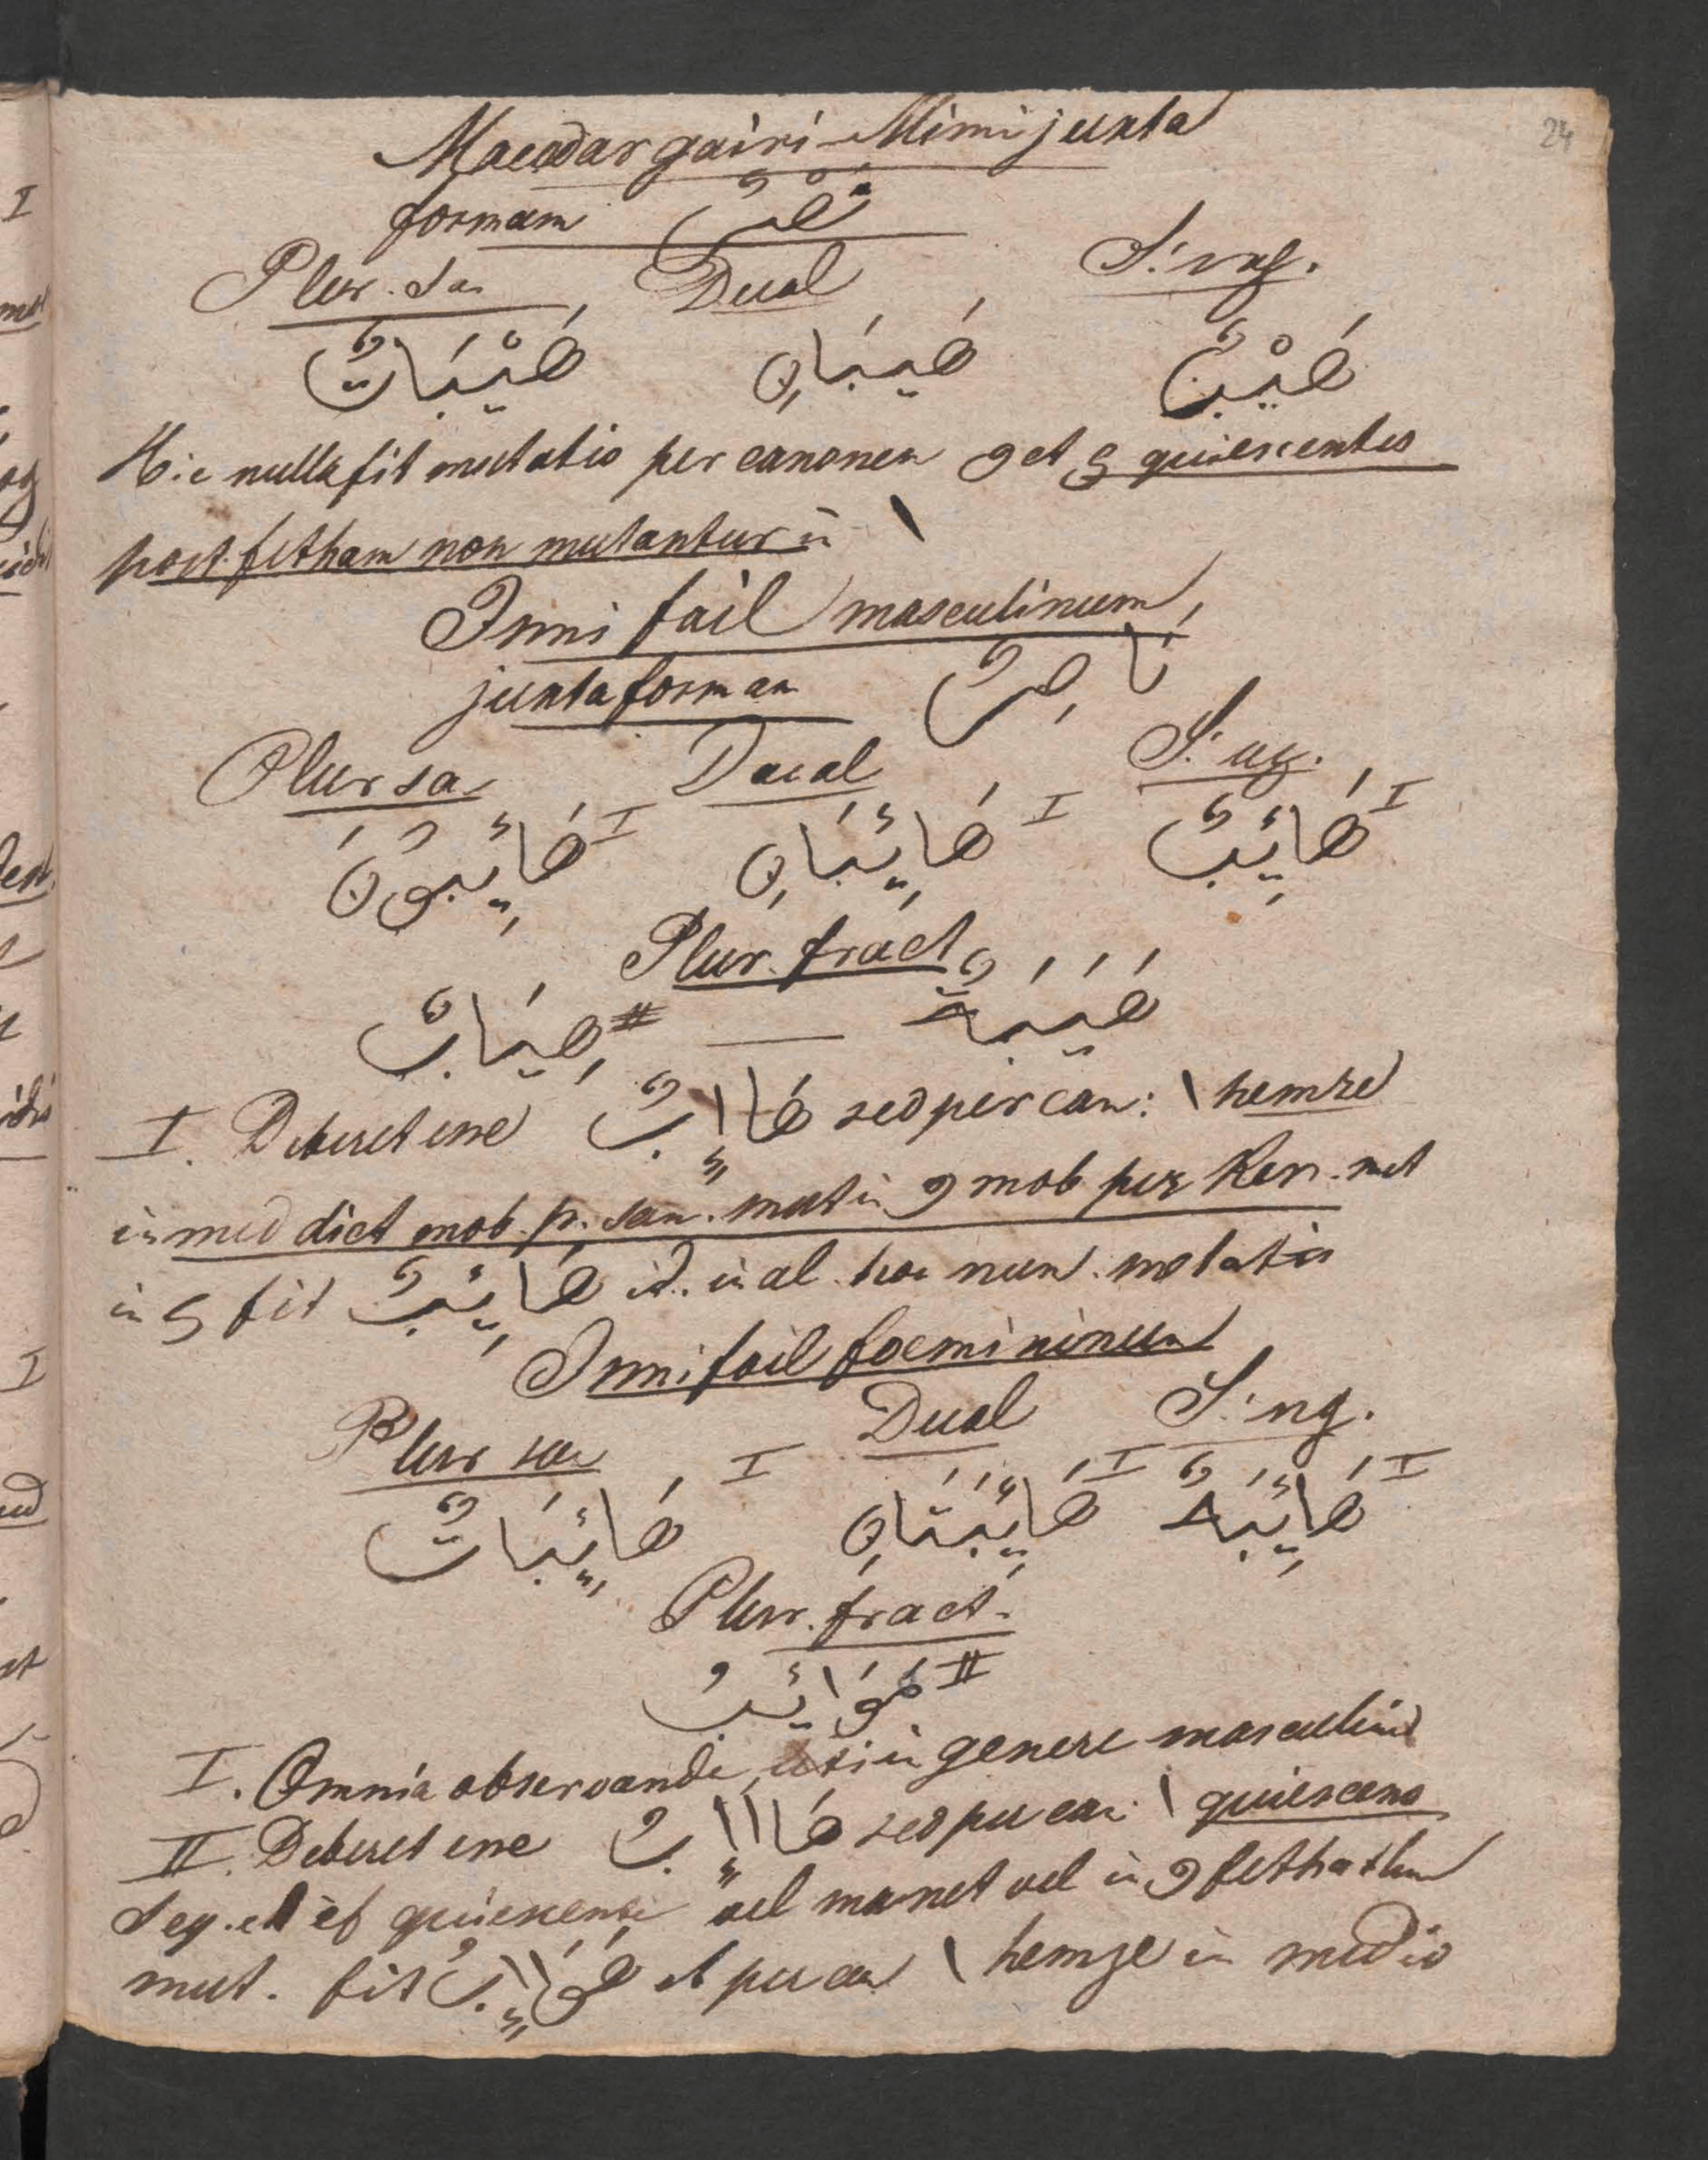 24
Macdar gairi Mimi juxta
formam نَصْرٌ
Plur. sa Dual Sing.
هَيْبَاتٌ هَيبَانِ هَيْبٌ
Hic nulla fit mutatio per canonem و et ي quiescentes
post fetham non mutantur in ا
Ismi fail masculinum
juxta formam نَاصِرٌ
Plur sa Dual Sing.
هَائِبُونَ I هَائِبَانِ I هَائِبٌ I
Plur. fract
هِيَابٌ II — هَيَبَةٌ
I. Deberet esse هَااِبٌ sed per can: ا hemze
in med dict mob. p. san. mut in و mob per Kesr. mut
in ي fit هَائِبٌ id. in al. hoc nun. mutatis
Ismi fail foemininum
Plur sa Dual Sing.
هَائِبَاتٌ I هَائِبَتَانِ I هَائِبَةٌ I
Plur. fract.
هَوَائِبُ II
I. Omnia observanda, uti in genere masculino
II. Deberet esse هَاااِبُ sed per can: ا quiescens
Seq. elif quiescense vel manet vel in و fethatum
mut. fit هَوَااِبُ et per can ا hemze in medio